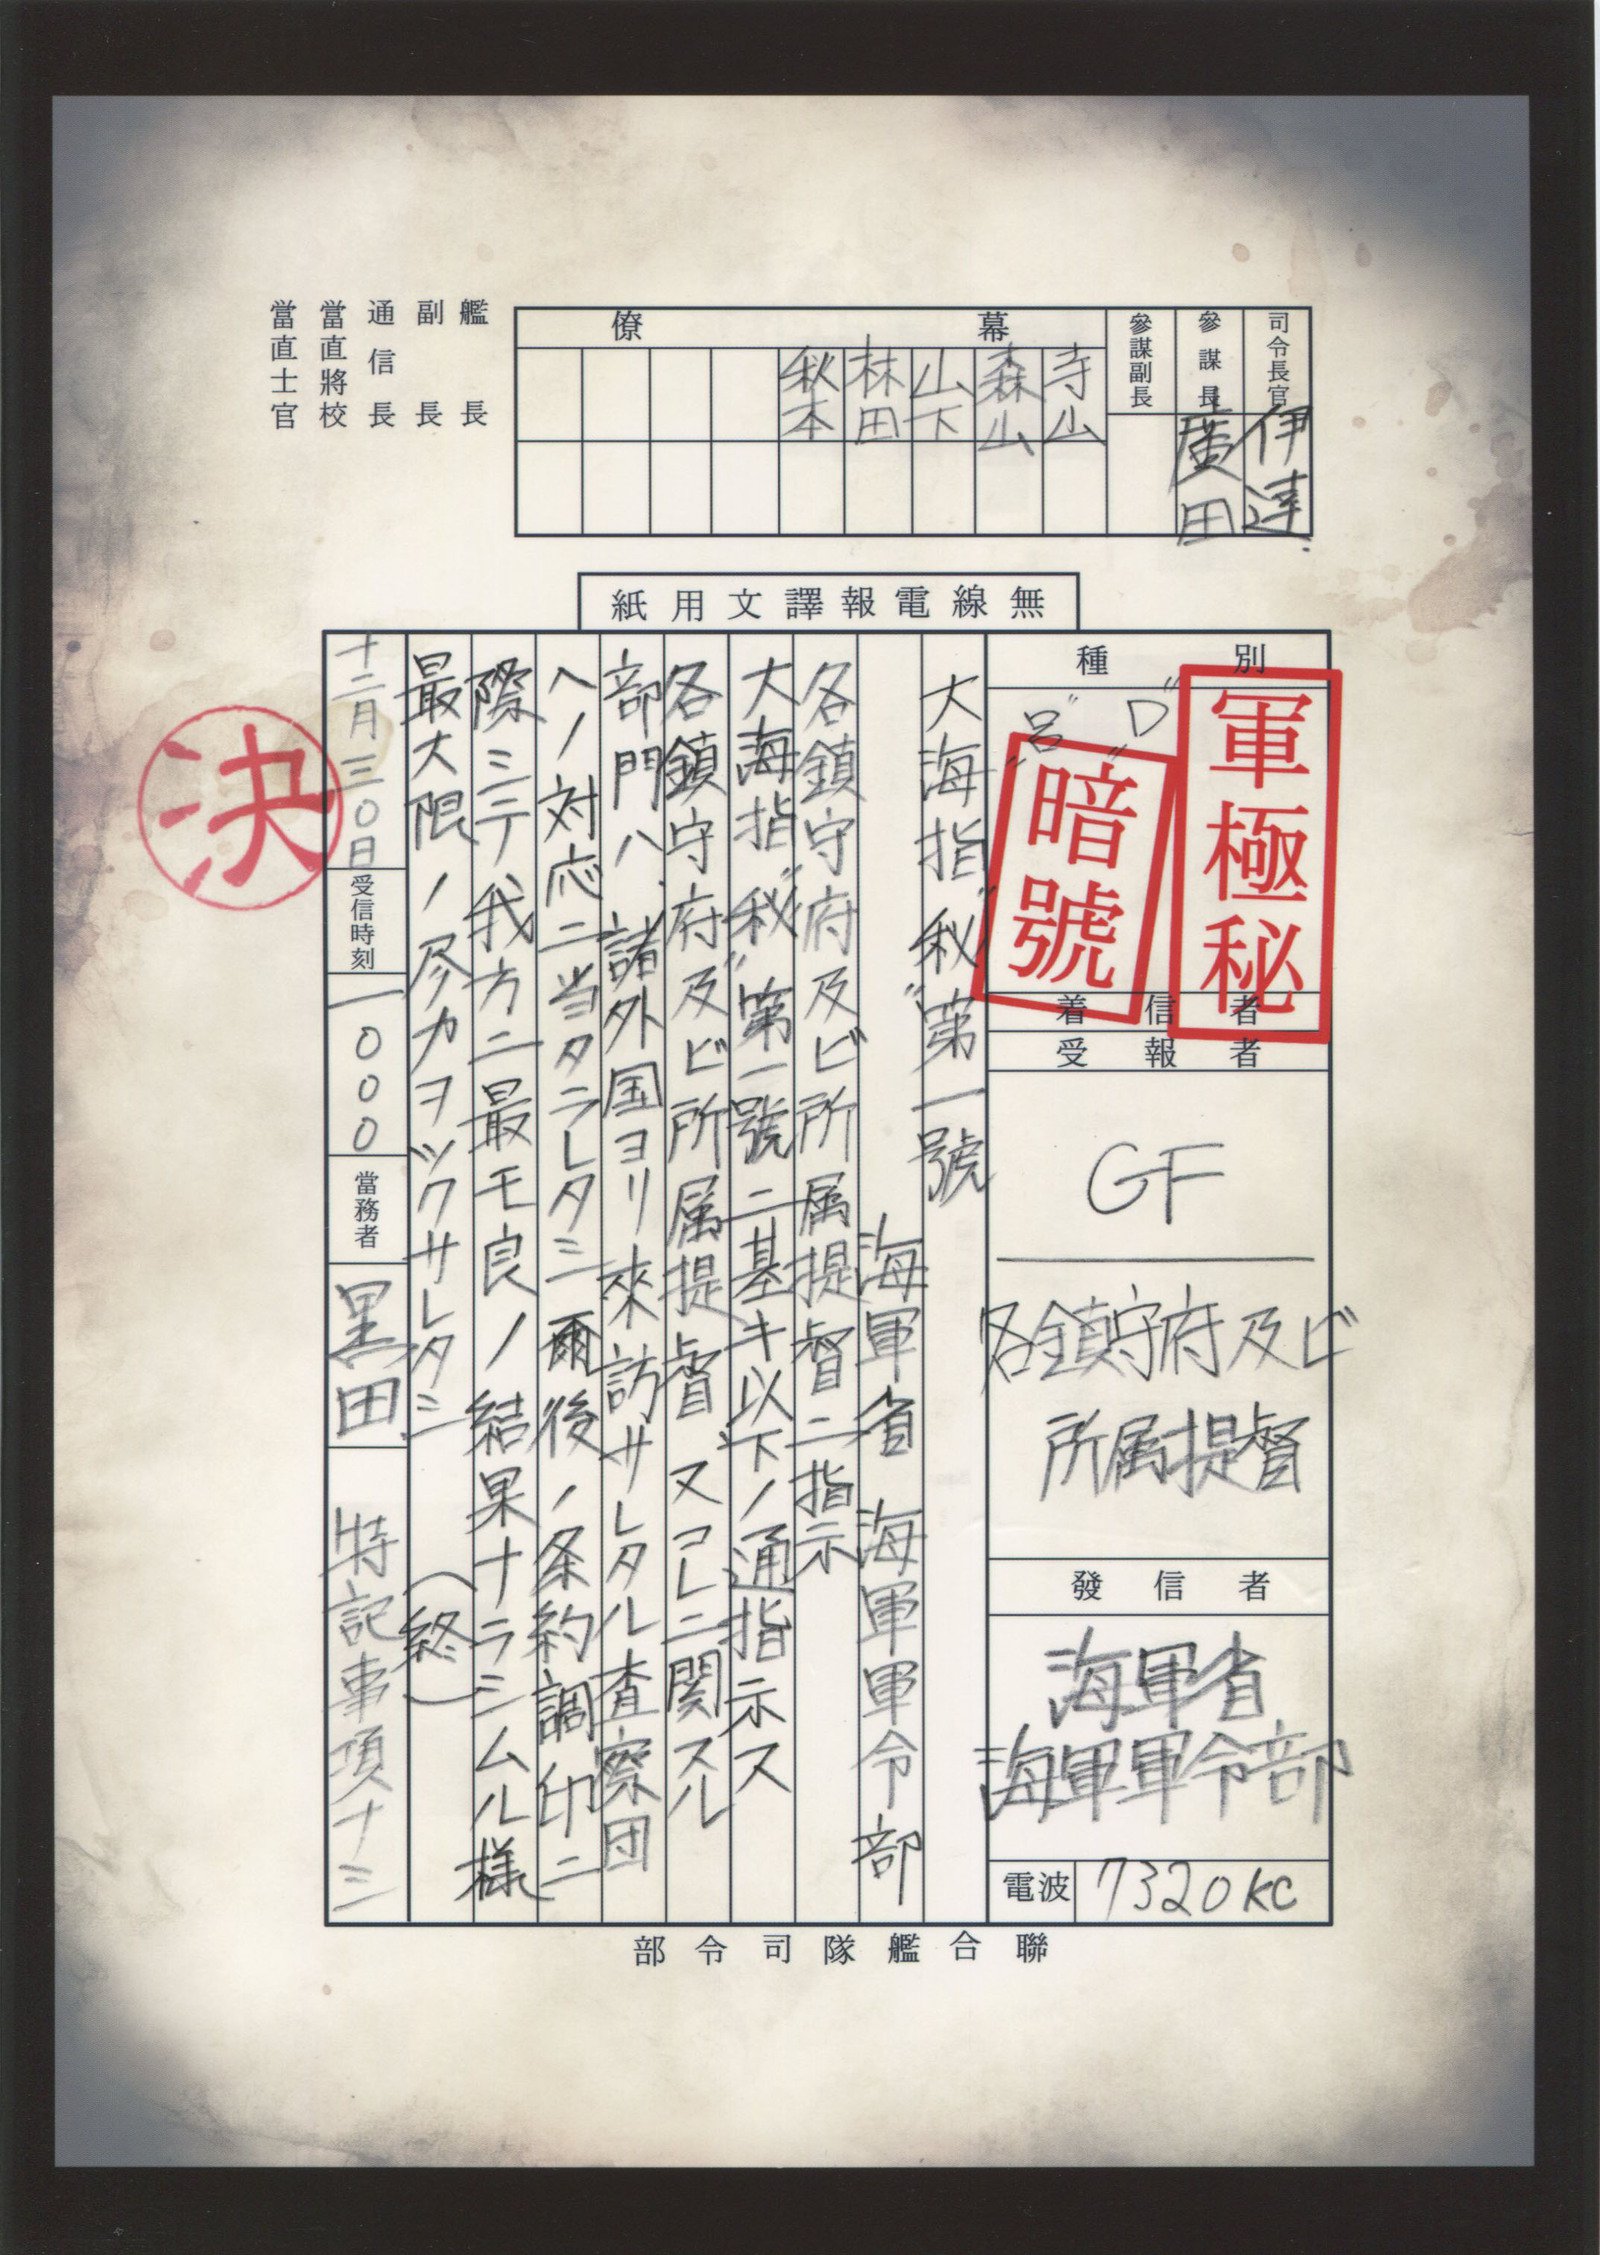 司令長官
伊達
參謀長
廣田
參謀副長
幕僚
寺山
森山
山下
林田
秋本
艦長
副長
通信長
當直將校
當直士官
無線電報譯文用紙
種別
軍極秘
"D"
"呂"
暗號
着信者
受報者
GF
各鎮守府及ビ
所属提督
發信者
海軍省
海軍軍令部
電波
7320KC
大海指"秘"第一號
海軍省 海軍軍令部
各鎮守府及ビ所属提督ニ指示
大海指"秘"第一號ニ基キ以下ノ通指示ス
各鎮守府及ビ所属提督、又コレニ関スル
部門ハ、諸外国ヨリ来訪サレタル査察団
ヘノ対応ニ当タラレタシ爾後ノ条約調印ニ
際ミテ我方ニ最モ良ノ結果ナラシムル様
最大限ノ尽力ヲツクサレタシ
(終)
十二月三〇日
受信時刻
一000
當務者
黒田
特記事項ナシ
決
聯合艦隊司令部